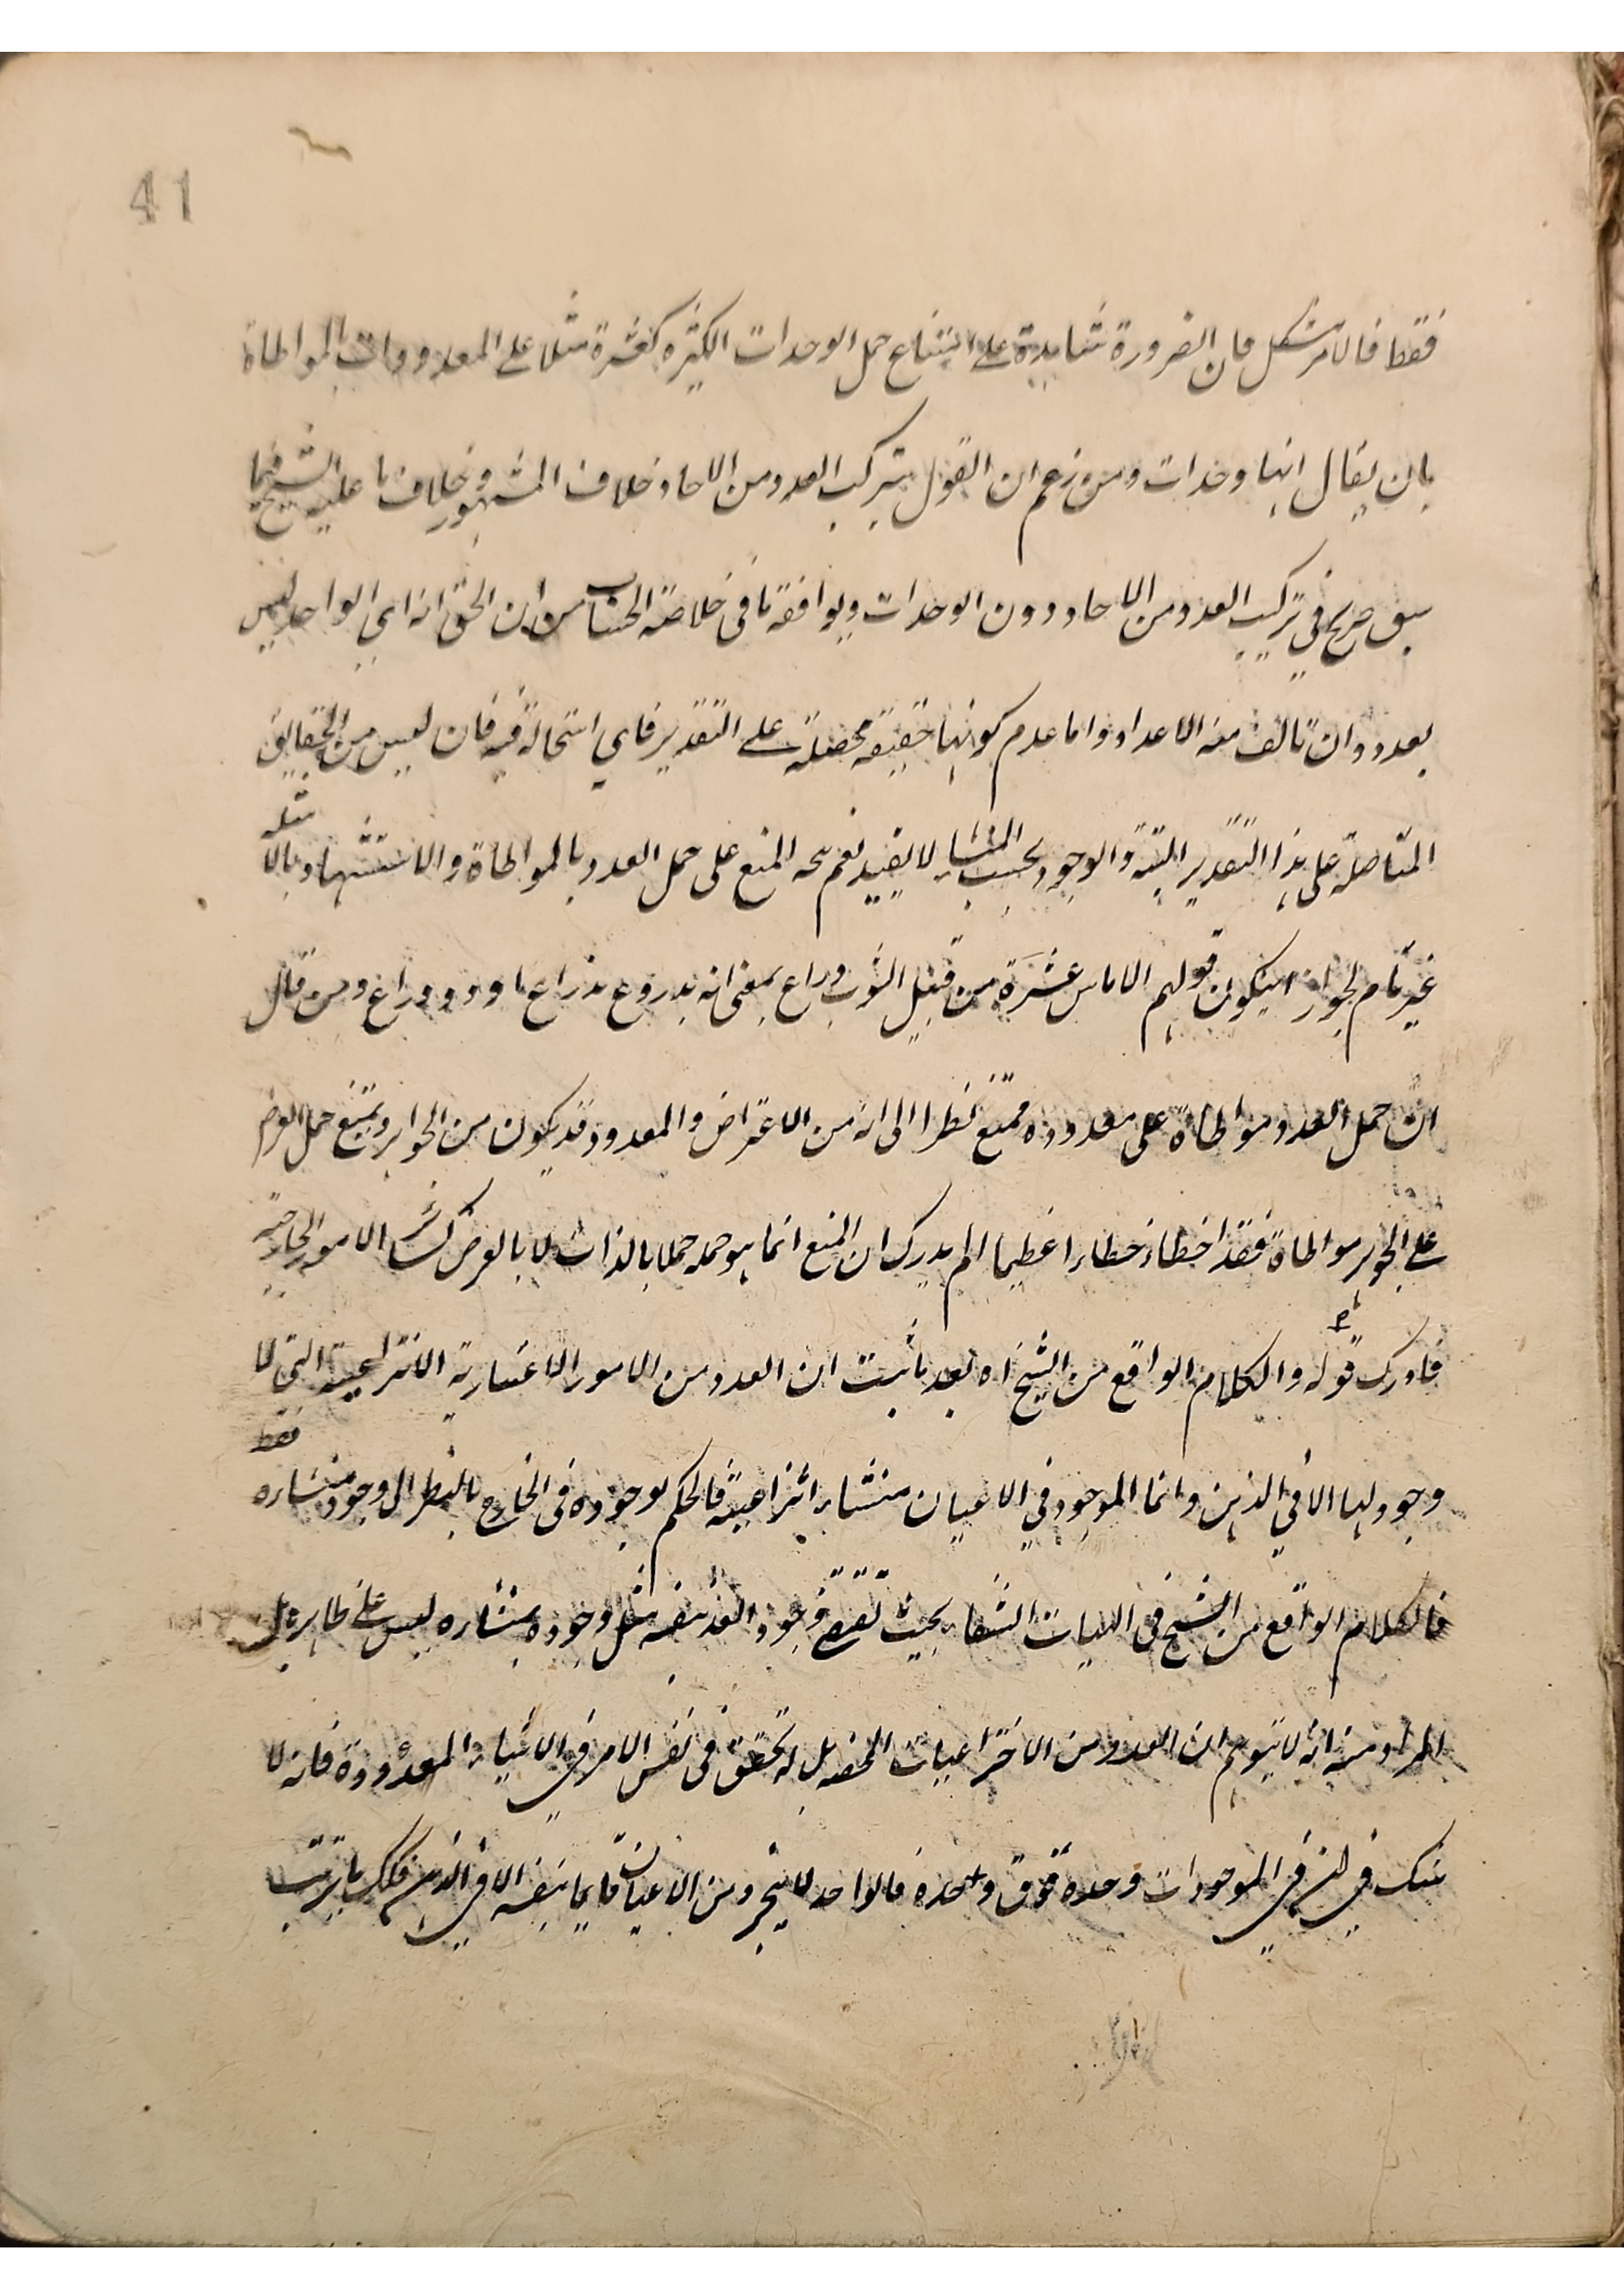 41
فقط فالامر مشكل فان الضرورة شاهدة على امتناع حمل الوحدات الكثيره كعشرة مثلا على المعدودات بالمواطاة
بان يقال انها وحدات ومن زعم ان القول بتركب العدد من الاحاد خلاف المشهور وخلاف ما عليه الشيخ فيما
سبق صريح في تركيب العدد من الاحاد دون الوحدات ويوافقه ما في خلاصة الحساب من ان الحق انه اي الواحد ليس
بعدد وان تالف منه الاعداد واما عدم كونها حقيقة محصلة على التقدير فاي استحالة فيه فان ليس من الحقايق
المتاصلة على هذا التقدير البتة والوجود بحسب المنشاء لا يفيد نعم يتجه المنع على حمل العدد بالمواطاة والاستشهاد بالامثلة
غير تام لجواز ان يكون قولهم الاناس عشرة من قبيل الثوب ذراع بمعنى انه مذروع بذراع او ذو ذراع ومن قال
ان حمل العدد مواطاة على معدوده ممتنع نظرا الى انه من الاعراض والمعدود قد يكون من الجواهر ويمتنع حمل العرض
على الجوهر مواطاة فقد اخطاء خطاء عظيما الم يدرك ان المنع انما هو حمله حملا بالذات لا بالعرض كسائر الامور الخارجية
فادرك قوله والكلام الواقع من الشيخ اه بعد ما ثبت ان العدد من الامور الاعتبارية الانتزاعية التي لا
وجود لها الا في الذهن وانما الموجود في الاعيان منشاء انتزاعية فالحكم بوجوده في الخارج بالنظر الى وجود منشاءه فقط
فالكلام الواقع من الشيخ في الهيات الشفاء بحيث يقتضي وجود العدد بنفسه مثل وجوده بمنشاءه ليس على ظاهره بل
المراد منه انه لا يتوهم ان العدد من الاختراعيات المحضه بل له تحقق في نفس الامر في الاشياء المعدودة فانه لا
شك في ان في الموجودات وحدة فوق وحدة فالواحد لا يتجرد من الاعيان قايما بنفسه الا في الذهن فكك ما يترتب